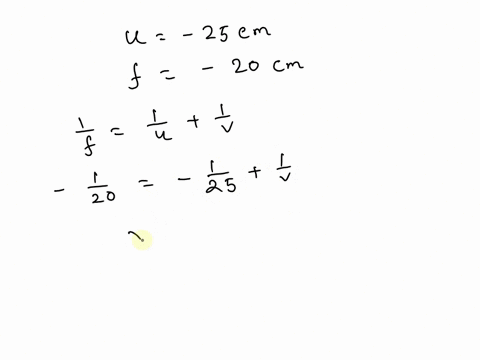 u = - 25 cm
f = - 20 cm
1/f = 1/u + 1/v
- 1/20 = - 1/25 + 1/v